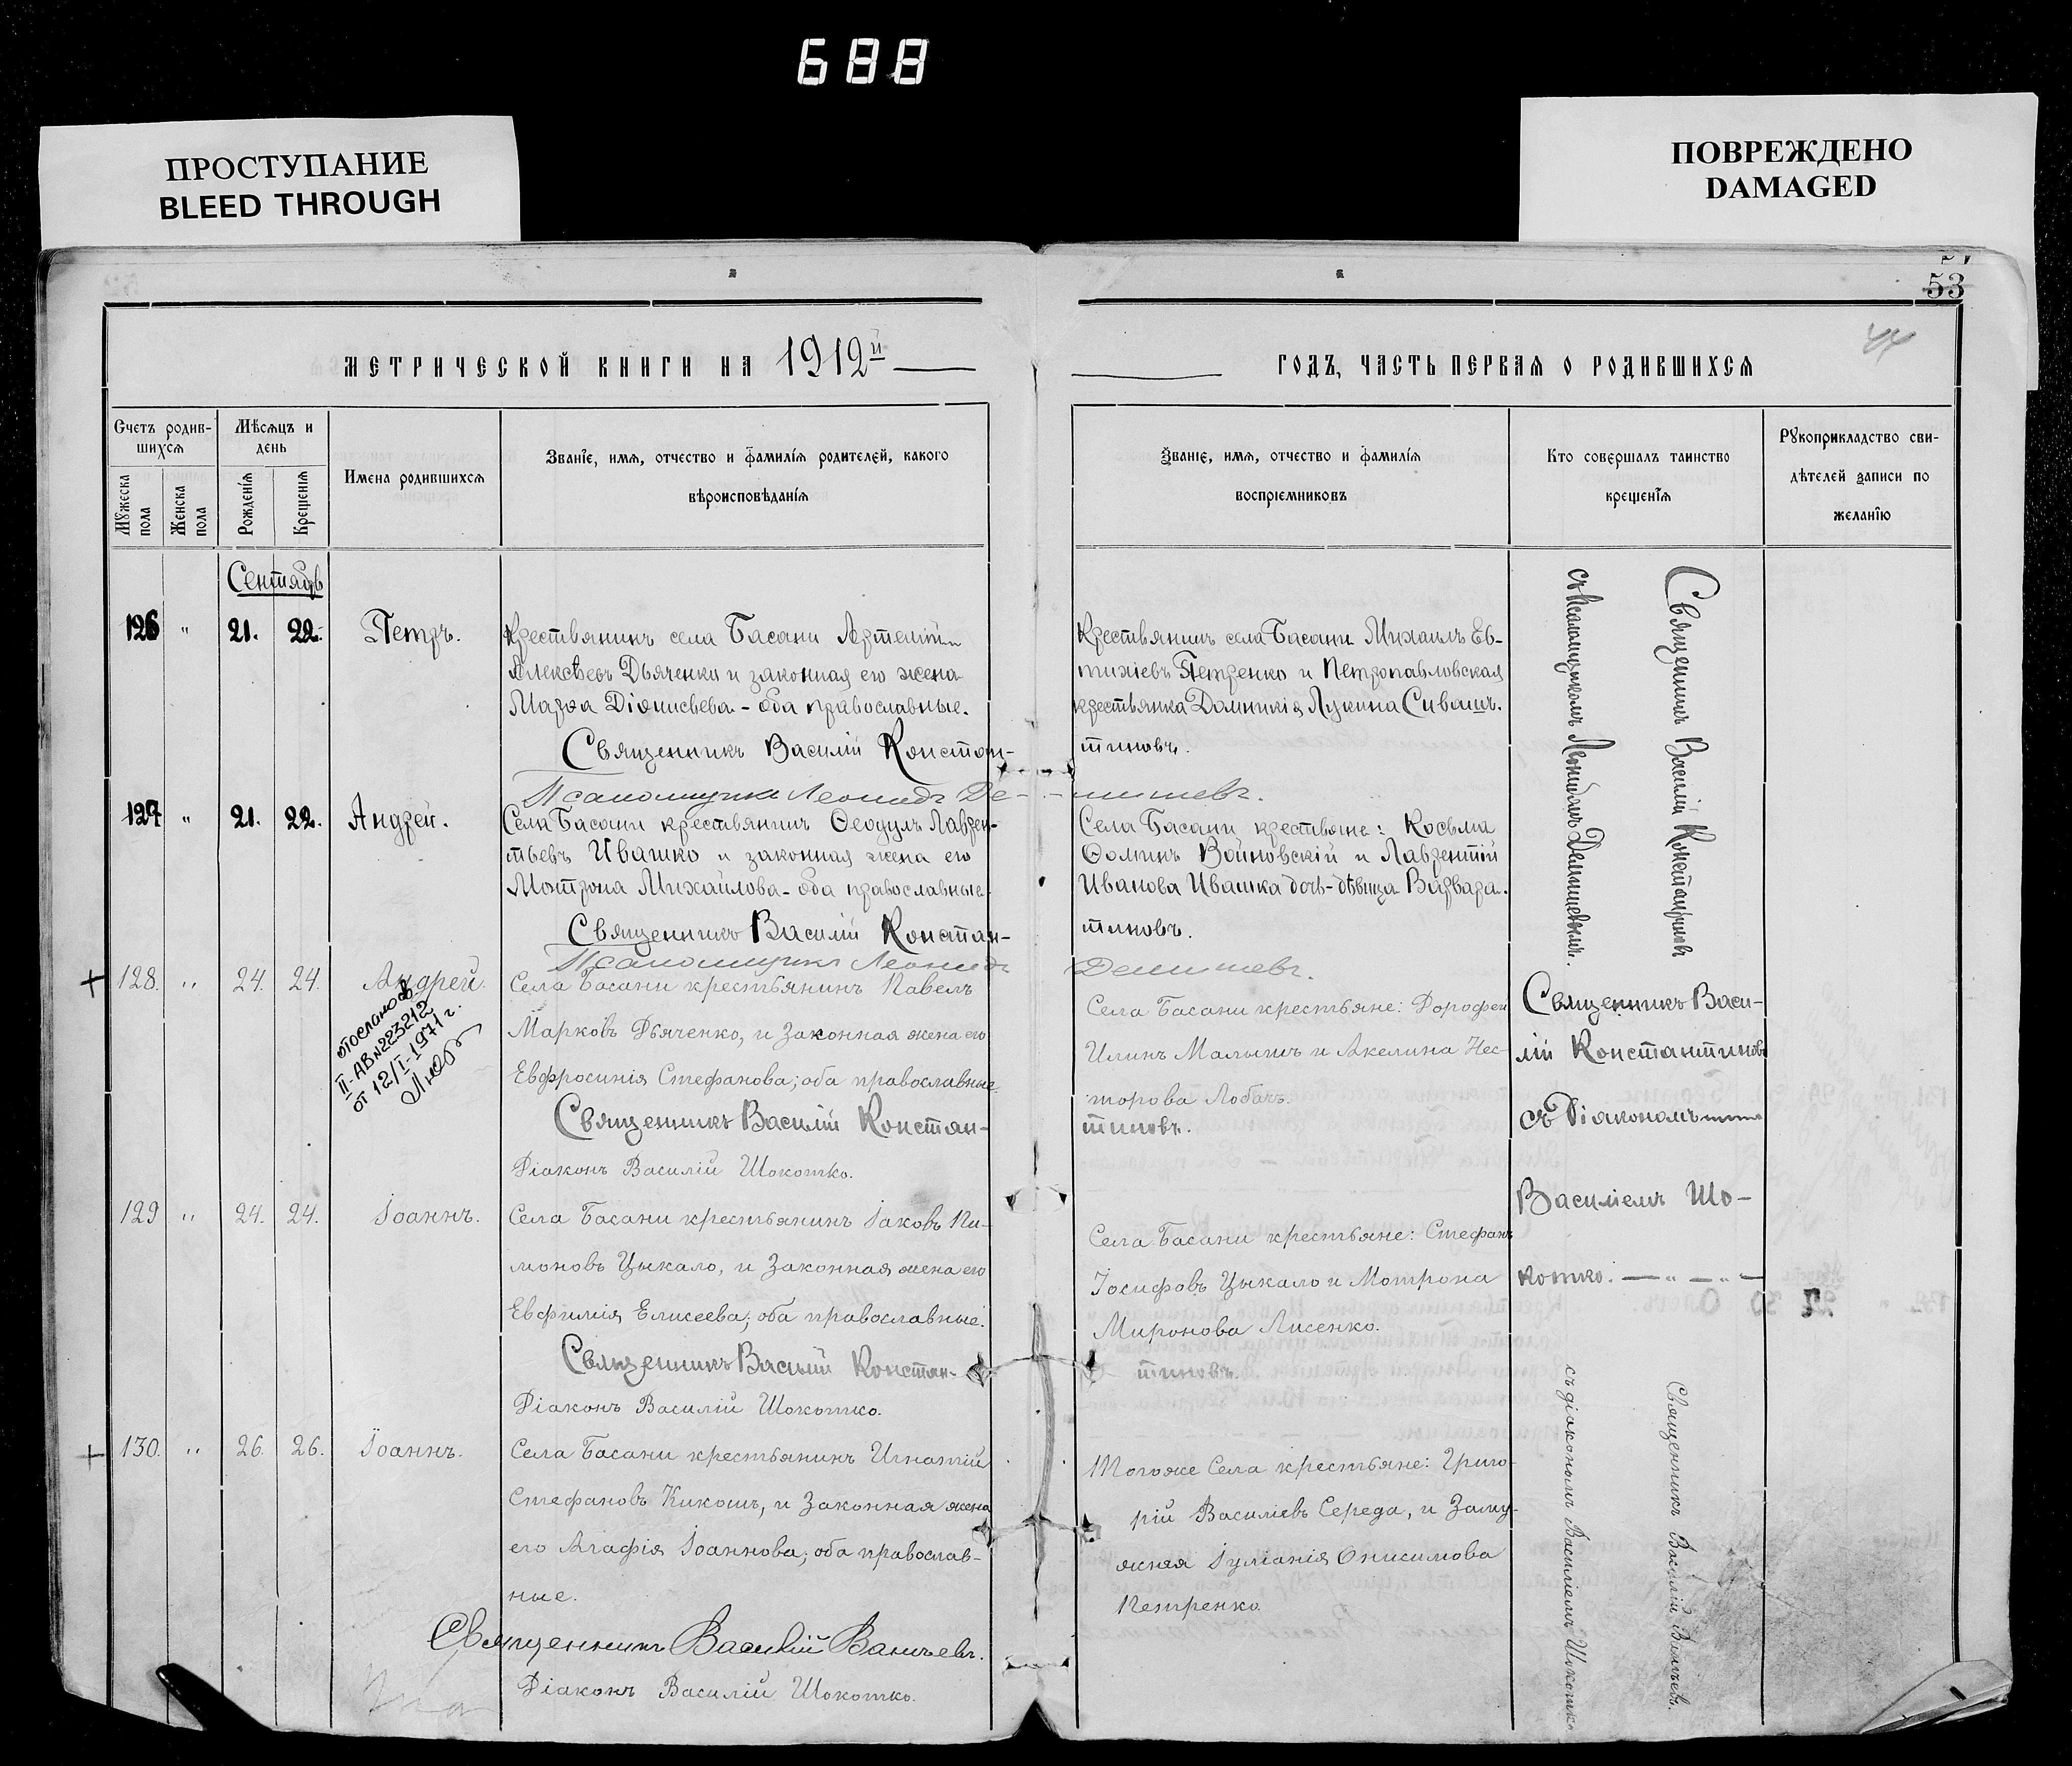 688
ПРОСТУПАНИЕ
BLEED THROUGH
ПОВРЕЖДЕНО
DAMAGED
53
МЕТРИЧЕСКОЙ КНИГИ НА 1912й
ГОДЪ, ЧАСТЬ ПЕРВАЯ О РОДИВШИХСЯ
Счетъ родив-
шихся
Мѣсяцъ и
день
Мужеска
пола
Женска
пола
Рожденія
Крещенія
Имена родившихся
Званіе, имя, отчество и фамилія родителей, какого
вѣроисповѣданія
Званіе, имя, отчество и фамилія
воспріемниковъ
Кто совершалъ таинство
крещенія
Рукоприкладство сви-
дѣтелей записи по
желанію
Сентябрь
126 " 21. 22. Петръ.
Крестьянинъ села Басани Артемій
Алексѣевъ Дьяченко и законная его жена
Марѳа Діонисьева - оба православные.
Священникъ Василій Констан-
Псаломщикъ Леонидъ Де-
Крестьянинъ села Басани Михаилъ Ев-
тихіевъ Петренко и Петропавловская
крестьянка Домникія Лукина Сивашъ.
тиновъ.
127 " 21. 22. Андрей.
Села Басани крестьянинъ Ѳеодулъ Лаврен-
тьевъ Ивашко и законная жена его
Мотрона Михайлова - оба православные.
Священникъ Василій Констан-
Псаломщикъ Леонидъ
Села Басани крестьяне: Косьма
Ѳоминъ Войновскій и Лаврентій
Иванова Ивашка дочь-дѣвица Варвара.
тиновъ.
Священникъ Василій Константиновъ
съ псаломщикомъ Леонидомъ
+ 128. " 24. 24. Андрей.
отослано
II-АВ №223212
от 12/I-1971 г.
Села Басани крестьянинъ Павелъ
Марковъ Дьяченко, и Законная жена его
Евфросинія Стефанова; оба православные
Священникъ Василій Констан-
Діаконъ Василій Шокотко.
Села Басани крестьяне: Дорофей
Илинъ Малышъ и Акелина Нес-
торова Лобачъ.
тиновъ.
Священникъ Васи-
лій Константиновъ
съ Діакономъ
Василіемъ Шо-
котко. — " — " —
129 " 24. 24. Іоаннъ.
Села Басани крестьянинъ Іаковъ Пи-
моновъ Цыкало, и Законная жена его
Евфимія Елисеева; оба православные.
Священникъ Василій Констан-
Діаконъ Василій Шокотко.
Села Басани крестьяне: Стефанъ
Іосифовъ Цыкало и Мотрона
Миронова Лисенко.
тиновъ.
+ 130. " 26. 26. Іоаннъ.
Села Басани крестьянинъ Игнатій
Стефановъ Кикошъ, и Законная жена
его Агафія Іоаннова; оба православ-
ные.
Священникъ Василій
Діаконъ Василій Шокотко.
Тогоже Села крестьяне: Григо-
рій Василіевъ Середа, и Заму-
жняя Іуліанія Онисимова
Петренко.
Священникъ Василій
съ діакономъ Василіемъ Шокотко